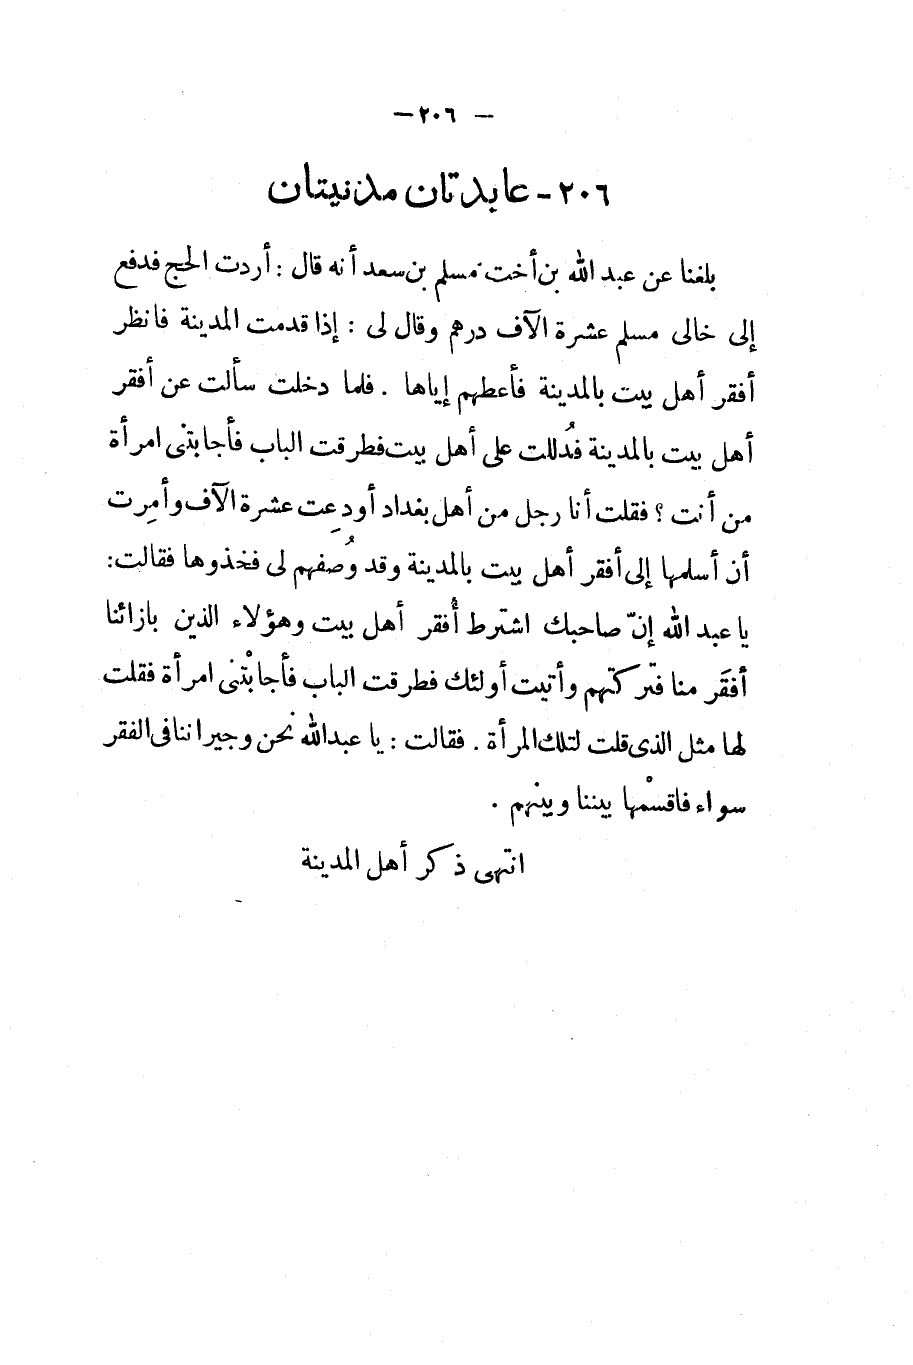 — ٢٠٦ —
٢٠٦ - عابدتان مدنيتان
بلغنا عن عبد الله بن أخت مسلم بن سعد أنه قال : أردت الحج فدفع
إلى خالى مسلم عشرة الآف درهم وقال لى : إذا قدمت المدينة فانظر
أفقر أهل بيت بالمدينة فأعطهم إياها . فلما دخلت سألت عن أفقر
أهل بيت بالمدينة فدُللت على أهل بيت فطرقت الباب فأجابتنى امرأة
من أنت ؟ فقلت أنا رجل من أهل بغداد أودِعت عشرة الآف وأمِرت
أن أسلمها إلى أفقر أهل بيت بالمدينة وقد وُصفهم لى فخذوها فقالت :
يا عبد الله إنّ صاحبك اشترط أُفقر أهل بيت وهؤلاء الذين بازائنا
أفقَر منا فتركتهم وأتيت أولئك فطرقت الباب فأجابتْنى امرأة فقلت
لها مثل الذى قلت لتلك المرأة . فقالت : يا عبدالله نحن وجيراننا فى الفقر
سواء فاقسْمها بيننا وبينهم .
انتهى ذكر أهل المدينة